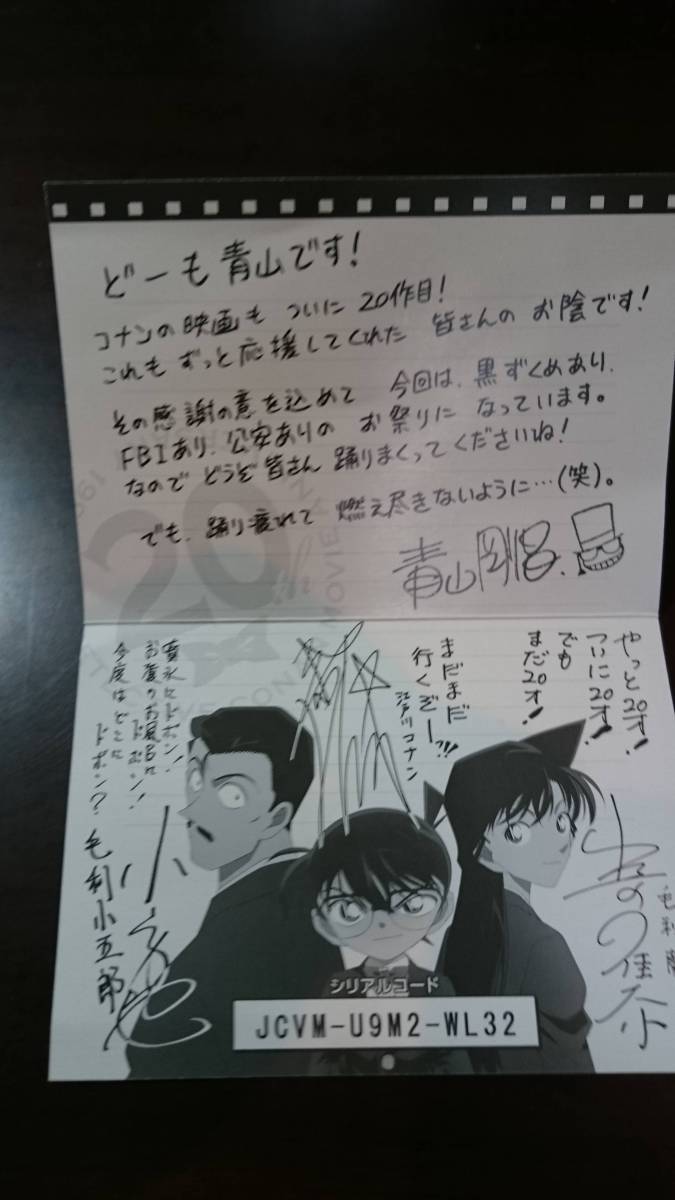 どーも青山です!
コナンの映画も ついに 20作目!
これも ずっと応援してくれた 皆さんの お陰です!
その感謝の意を込めて 今回は、黒ずくめあり、
FBIあり、公安ありの お祭りに なっています。
なので どうぞ皆さん 踊りまくってくださいね!
でも、踊り疲れて 燃え尽きないように…(笑)。
青山剛昌.
やっと20才!
ついに20才!
でも
まだ20才!
毛利蘭
まだまだ
行くぞーっ!!
江戸川コナン
お腹のお風呂に
ドボン!
今度はどこに
ドボン?
毛利小五郎
シリアルコード
JCVM-U9M2-WL32